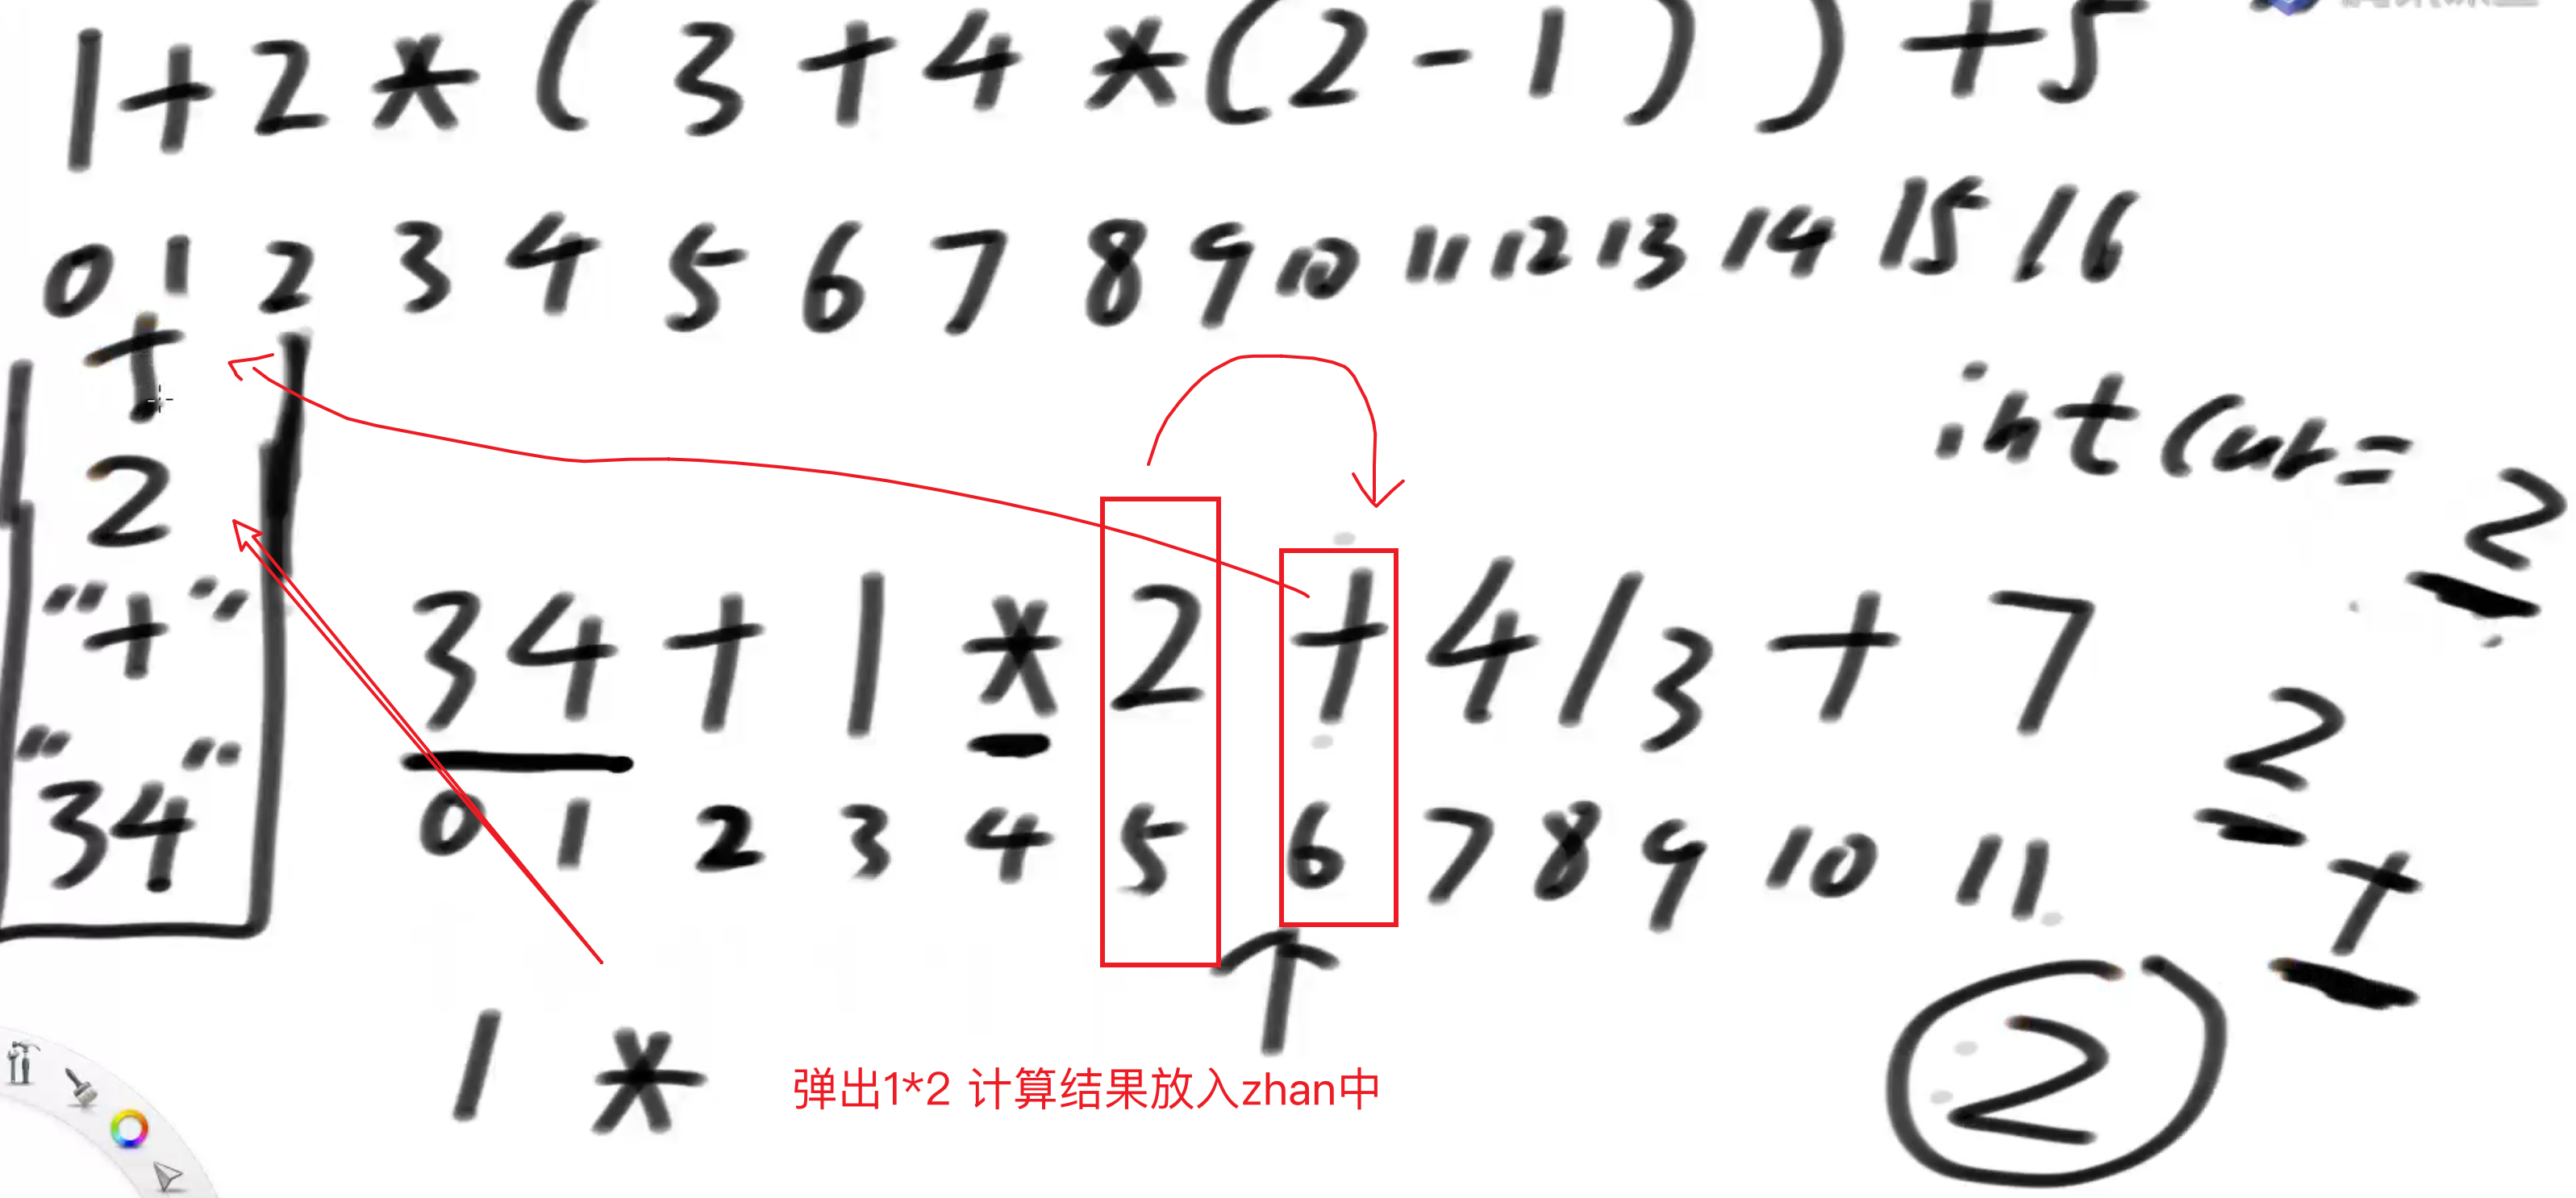 1+2*(3+4*(2-1))+5
0 1 2 3 4 5 6 7 8 9 10 11 12 13 14 15 16
+
2
"+"
"34"
int cur=
2
34+1*2+4/3+7
0 1 2 3 4 5 6 7 8 9 10 11
2
+
2
1 *
弹出1*2 计算结果放入zhan中